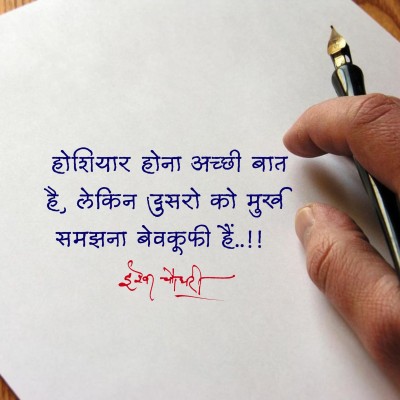 होशियार होना अच्छी बात
है, लेकिन दुसरो को मुर्ख
समझना बेवकूफी हैं..!!
चौधरी